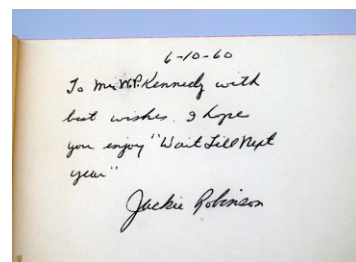 6-10-60
To Mr. W.P. Kennedy with
best wishes. I hope
you enjoy "Wait Till Next
year"
Jackie Robinson